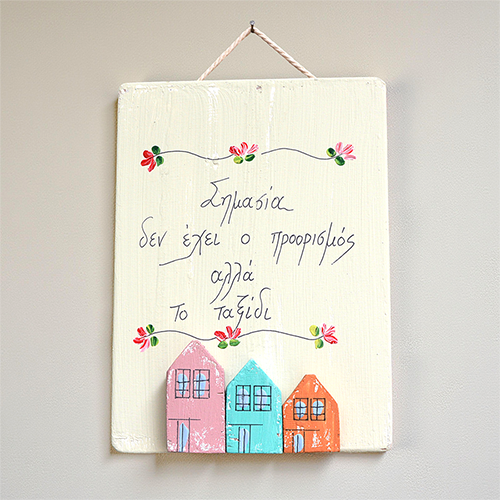 Σημασία
δεν έχει ο προορισμός
αλλά
Το ταξίδι